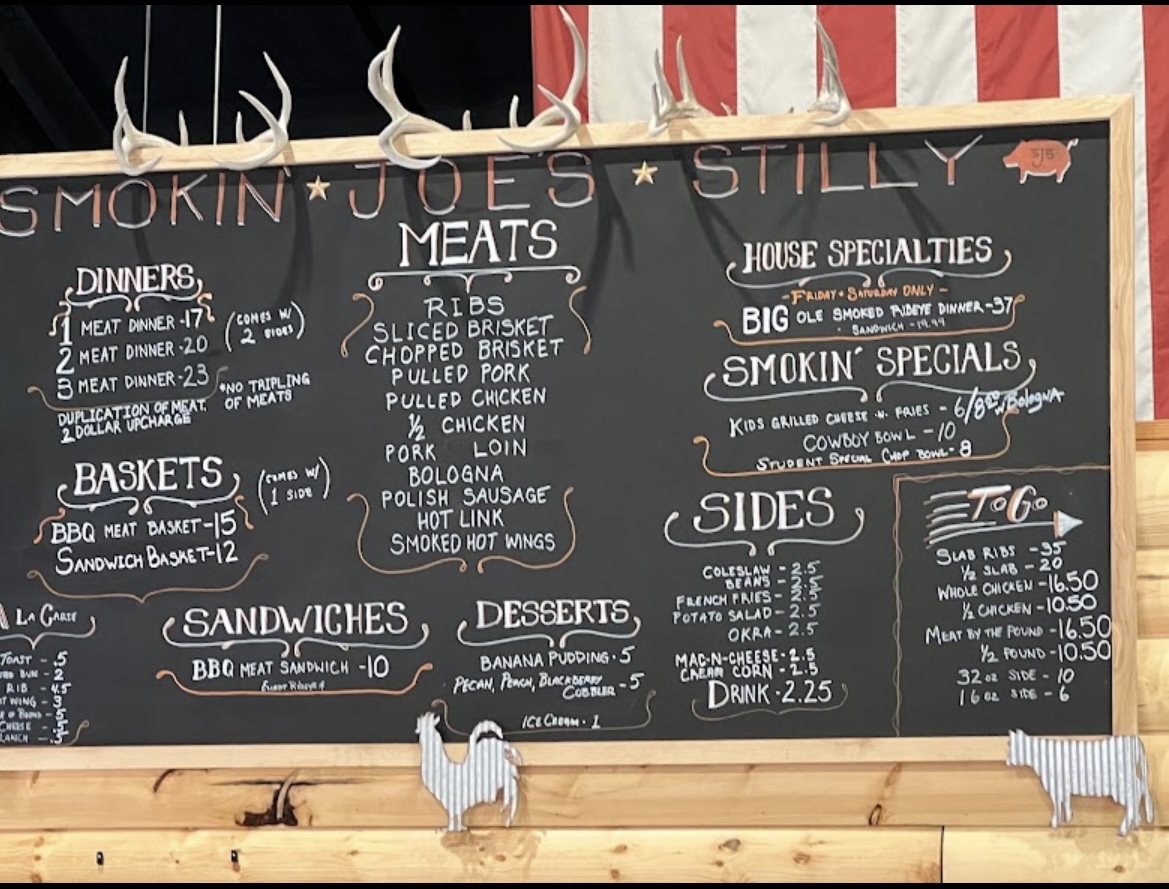 SMOKIN' JOE'S STILLY
SJ'S
DINNERS
1 MEAT DINNER -17
2 MEAT DINNER -20
3 MEAT DINNER -23
(COMES W/
2 SIDES)
DUPLICATION OF MEAT,
2 DOLLAR UPCHARGE
*NO TRIPLING
OF MEATS
BASKETS
(COMES W/
1 SIDE)
BBQ MEAT BASKET -15
SANDWICH BASKET-12
A LA CARTE
TOAST - .5
BUN - 2
RIB - 4.5
WING - 3
CHEESE -
RANCH -
MEATS
RIBS
SLICED BRISKET
CHOPPED BRISKET
PULLED PORK
PULLED CHICKEN
½ CHICKEN
PORK LOIN
BOLOGNA
POLISH SAUSAGE
HOT LINK
SMOKED HOT WINGS
SANDWICHES
BBQ MEAT SANDWICH -10
DESSERTS
BANANA PUDDING - 5
PECAN, PEACH, BLACKBERRY
COBBLER - 5
ICE CREAM - 1
HOUSE SPECIALTIES
- FRIDAY + SATURDAY ONLY -
BIG OLE SMOKED RIBEYE DINNER -37
SANDWICH - 19.99
SMOKIN' SPECIALS
KIDS GRILLED CHEESE N FRIES - 6/8.50 w/Bologna
COWBOY BOWL -10
STUDENT SPECIAL CHOP BOWL- 8
SIDES
COLESLAW - 2.5
BEANS - 2.5
FRENCH FRIES - 2.5
POTATO SALAD - 2.5
OKRA - 2.5
MAC-N-CHEESE - 2.5
CREAM CORN - 2.5
DRINK - 2.25
TO GO
SLAB RIBS - 35
½ SLAB - 20
WHOLE CHICKEN -16.50
½ CHICKEN -10.50
MEAT BY THE POUND -16.50
½ POUND -10.50
32 oz SIDE - 10
16 oz SIDE - 6